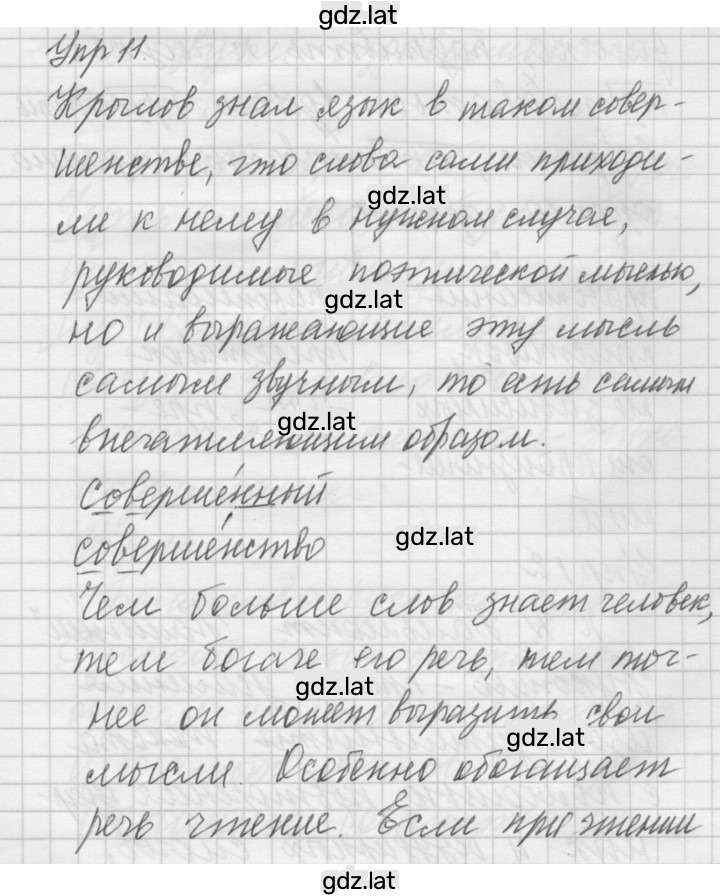 gdz.lat
Упр 11.
Крылов знал язык в таком совер-
шенстве, что слова сами приходи-
gdz.lat
ли к нему в нужном случае,
руководимые поэтической мыслью,
gdz.lat
но и выражающие эту мысль
самым звучным, то есть самым
gdz.lat
впечатляющим образом.
Соверше́нный
соверше́нство
gdz.lat
Чем больше слов знает человек,
тем богаче его речь, тем точ-
gdz.lat
нее он может выразить свои
gdz.lat
мысли. Особенно обогащает
речь чтение. Если при чтении
gdz.lat